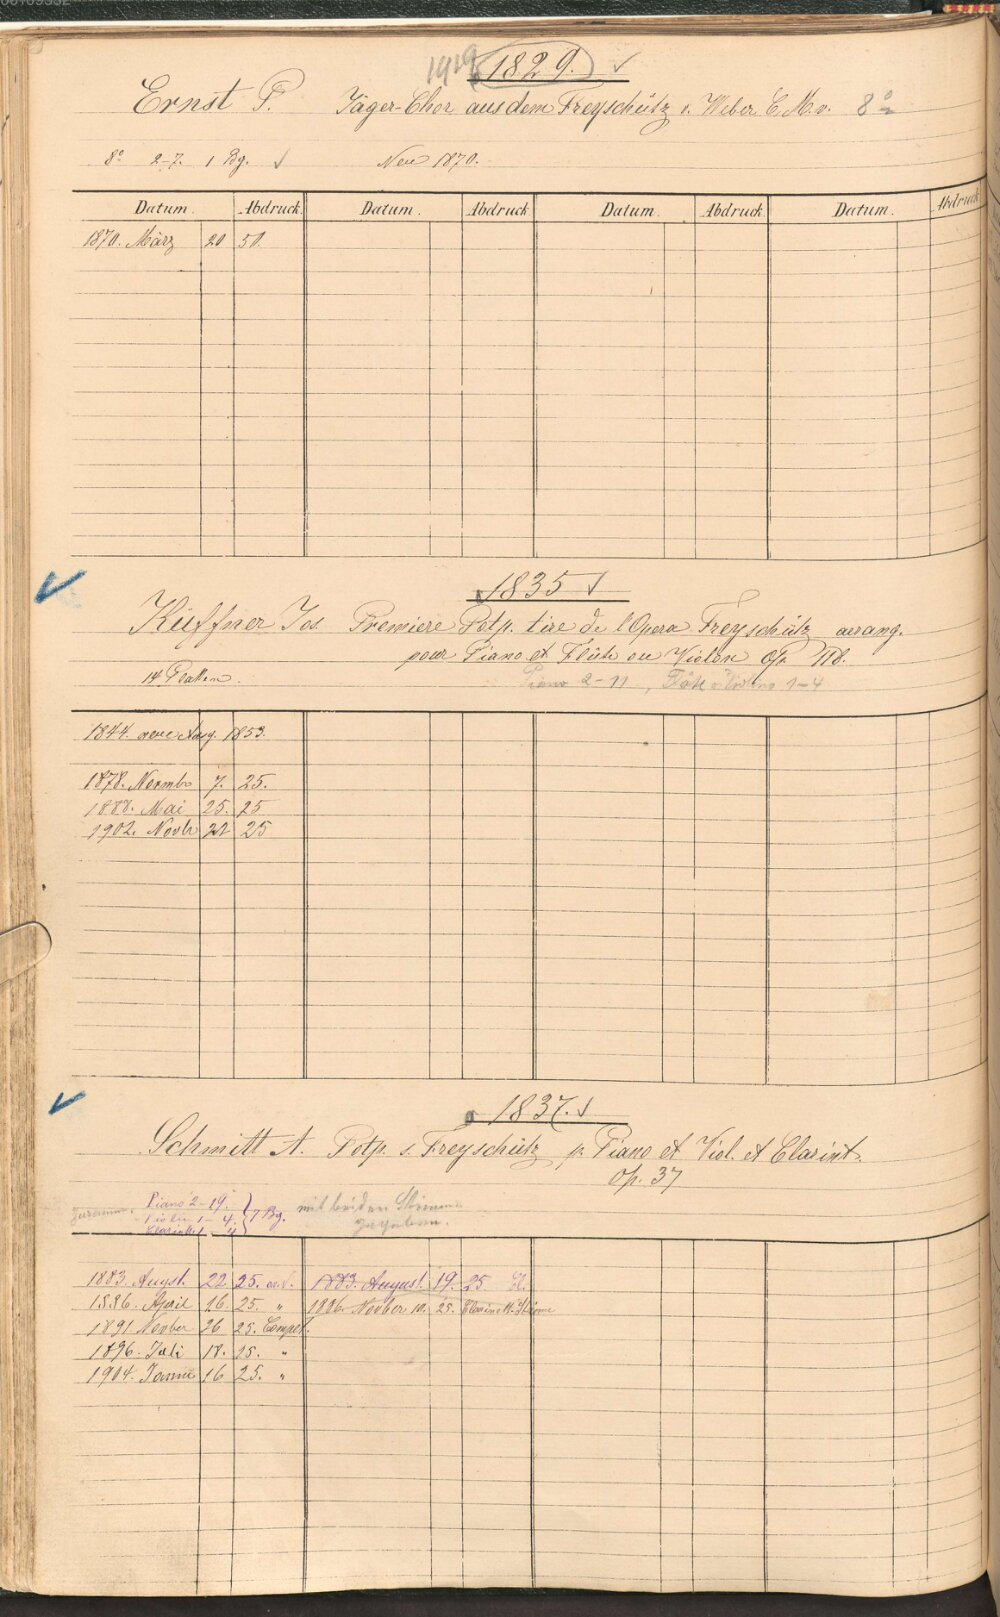 1919 1829. ✓
Ernst P. Jäger-Chor aus dem Freyschütz v. Weber C. M. v. 8º
8º 2-7. 1 Bg. ✓ Neu 1870.
Datum. Abdruck Datum. Abdruck Datum. Abdruck Datum. Abdruck
1870. März 20 50
1835 ✓
Küffner Jos. Premiere Potp. tire de l'Opera Freyschütz arrang.
pour Piano et Flûte ou Violon Op. 118.
14 Platten. Piano 2-11, Flöte 1-4
1844. neue Ausg. 1853.
1878. Novmbr 7. 25.
1888. Mai 25. 25
1902. Novbr 22 25
1837. ✓
Schmitt A. Potp. s. Freyschütz p. Piano et Viol. et Clarint.
Op. 37
zusamm. Piano 2-19. } 7 Bg. mit beiden Stimmen
Violin 1-4. zugeben.
Clarintt. 1 4
1883. August. 22. 25. 1883. August. 19. 25 Cl.
1886. April 16. 25. " 1886. Novber 10. 25. Clarinett. Stimme
1891 Novber 26 25. Complt.
1896. Juli 18. 25. "
1904. Januar 16 25. "